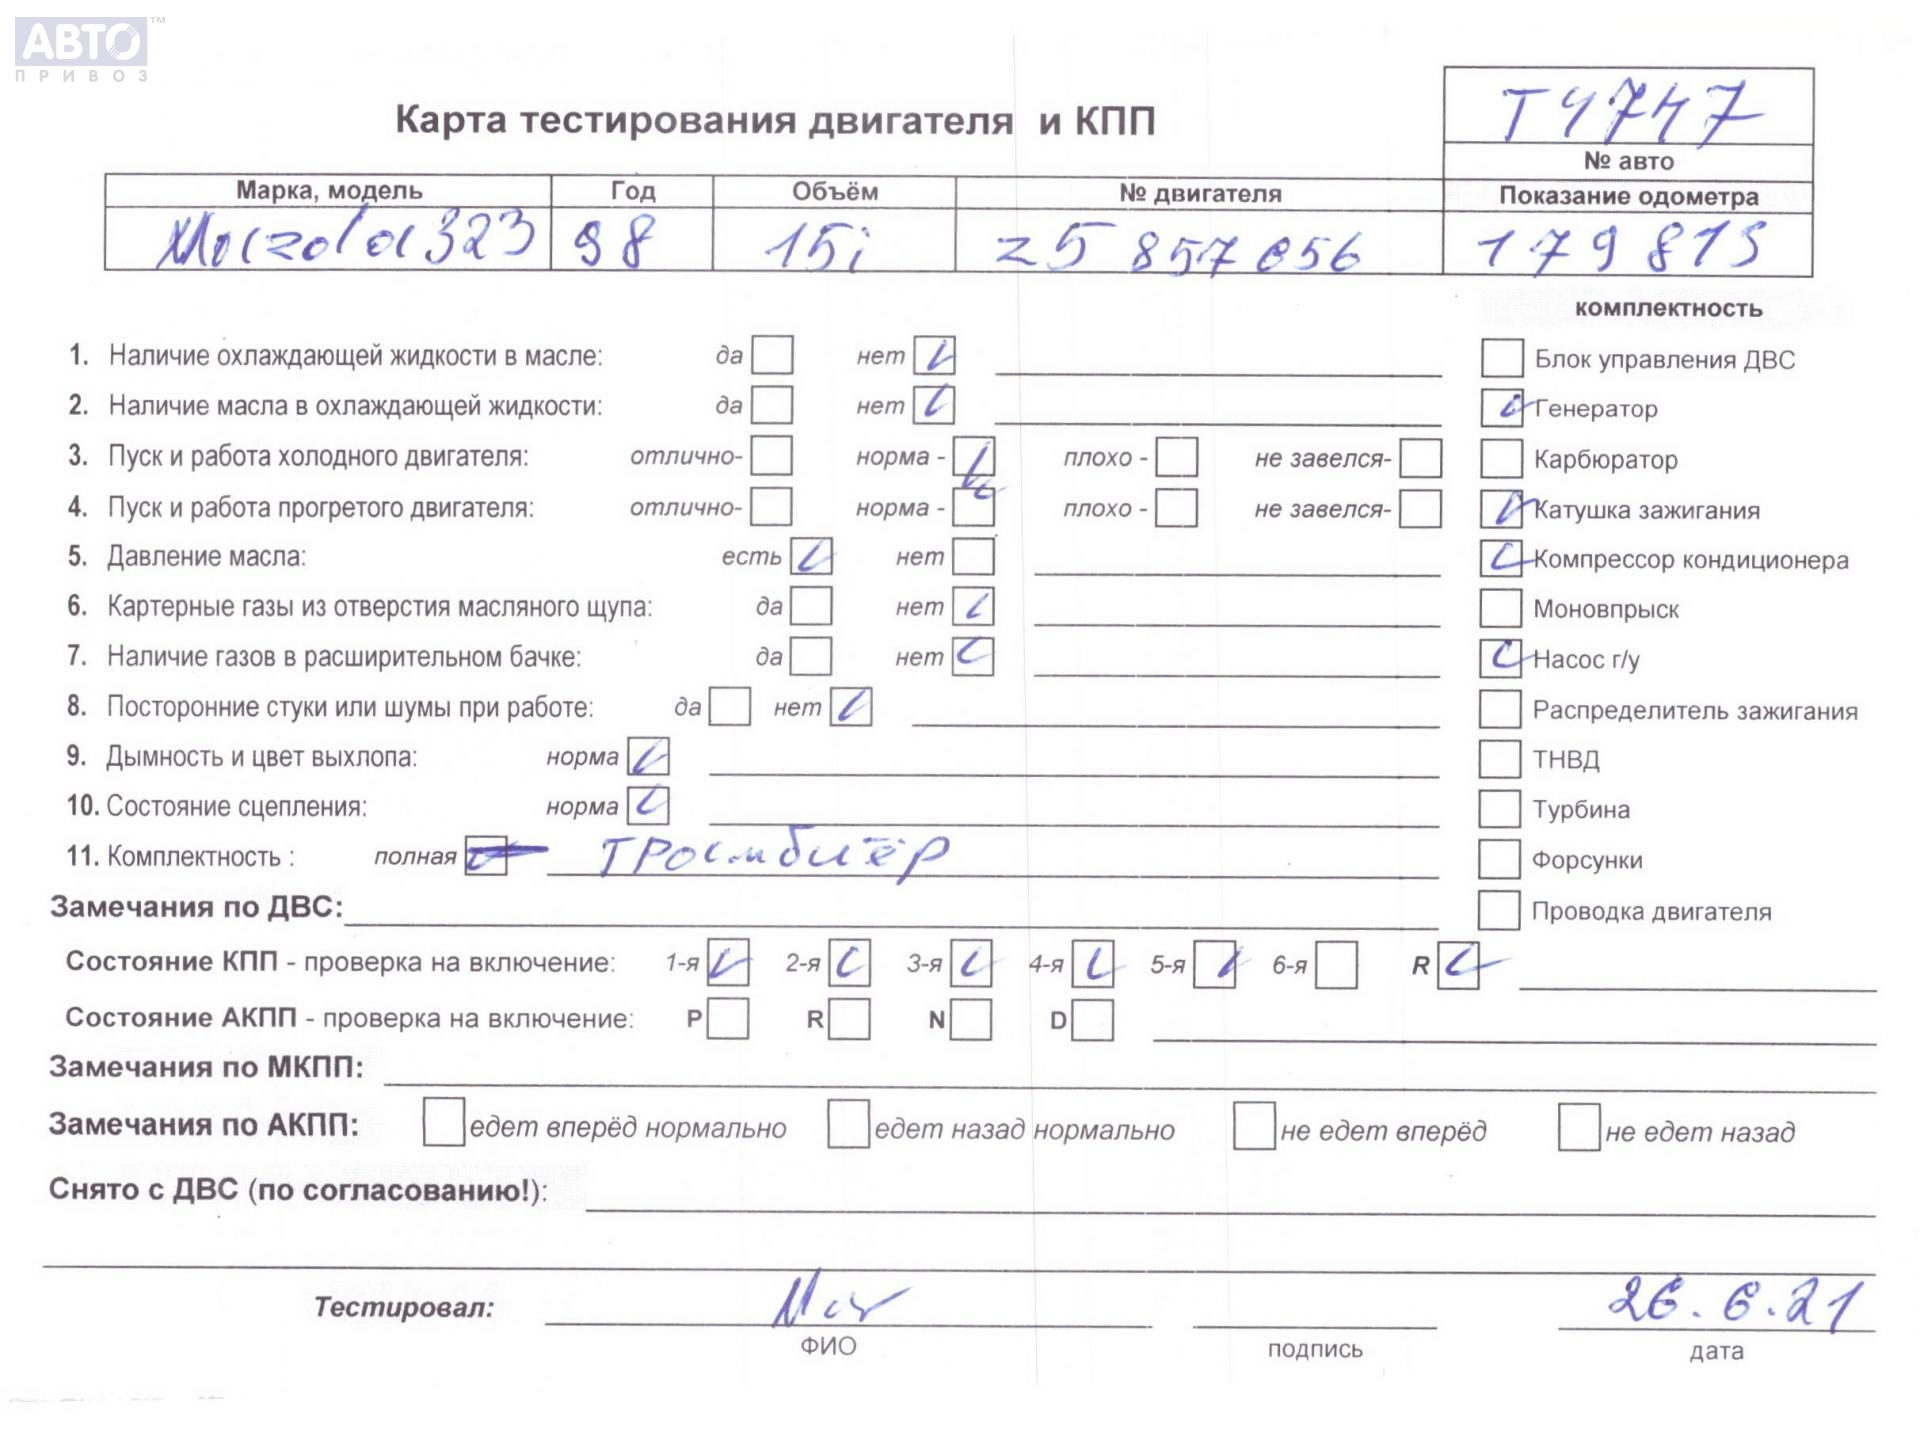 АВТО™
ПРИВОЗ
Т4747
Карта тестирования двигателя и КПП
№ авто
Марка, модель Год Объём № двигателя Показание одометра
Mazda 323 98 15i z5 857056 179815
комплектность
1. Наличие охлаждающей жидкости в масле: да нет Блок управления ДВС
2. Наличие масла в охлаждающей жидкости: да нет Генератор
3. Пуск и работа холодного двигателя: отлично- норма - плохо - не завелся- Карбюратор
4. Пуск и работа прогретого двигателя: отлично- норма - плохо - не завелся- Катушка зажигания
5. Давление масла: есть нет Компрессор кондиционера
6. Картерные газы из отверстия масляного щупа: да нет Моновпрыск
7. Наличие газов в расширительном бачке: да нет Насос г/у
8. Посторонние стуки или шумы при работе: да нет Распределитель зажигания
9. Дымность и цвет выхлопа: норма ТНВД
10. Состояние сцепления: норма Турбина
11. Комплектность : полная Форсунки
Замечания по ДВС: Проводка двигателя
Состояние КПП - проверка на включение: 1-я 2-я 3-я 4-я 5-я 6-я R
Состояние АКПП - проверка на включение: P R N D
Замечания по МКПП:
Замечания по АКПП: едет вперёд нормально едет назад нормально не едет вперёд не едет назад
Снято с ДВС (по согласованию!):
Тестировал: 26.6.21
ФИО подпись дата